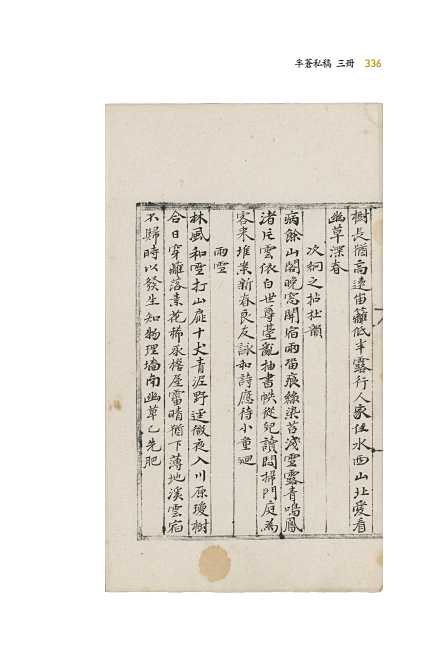 半蒼私稿 三冊 336
樹長猶高遠笛籬低半露行人家住水西山北愛看
幽草深春
次洞之拈杜韻
病餘山閣晚窓開宿雨留痕綠染苔浅雲露青鳴鳳
渚片雲依白世尊臺亂抽書帙從兒讀閒掃門庭為
客來堆案新春良友詠和詩應待小童廻
雨雪
林風和雪打山扉十犬青泥野逕微夜入川原瓊樹
合日穿籬落素花稀永捲屋霤晴猶下薄地溪雲宿
不歸時以發生知物理墻南幽草已先肥